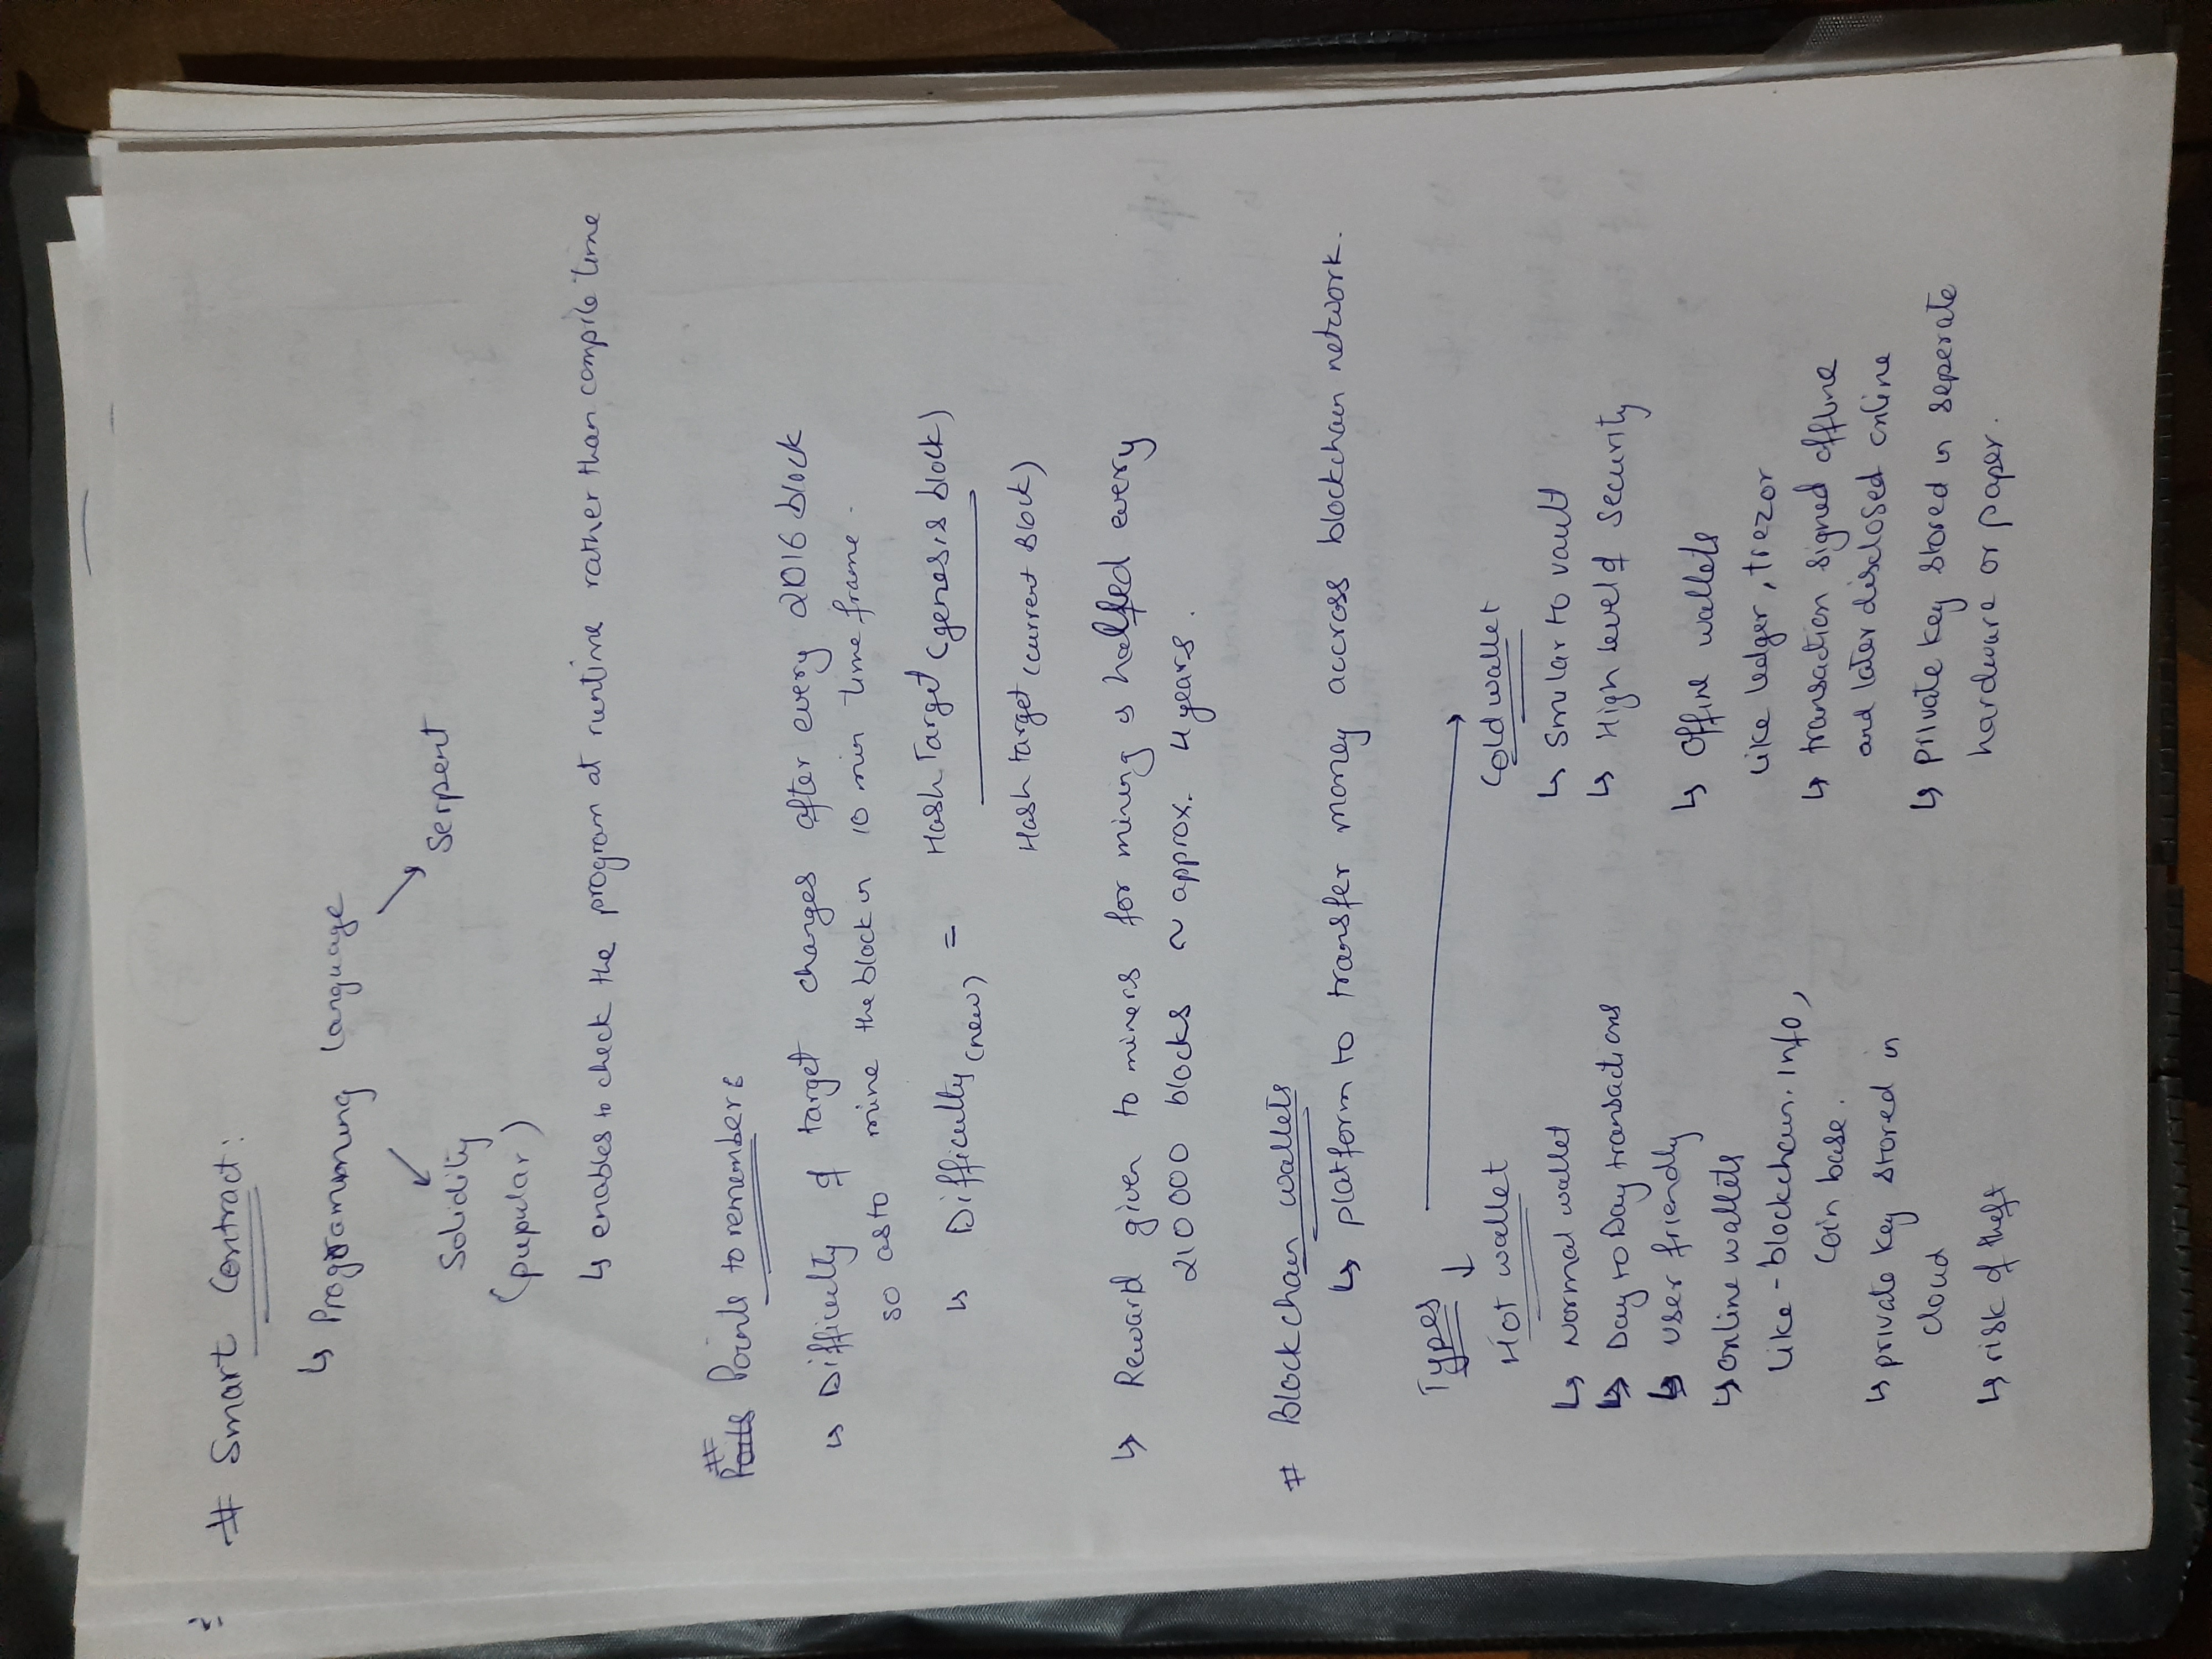 # Smart Contract:
↳ Programming language
↙ ↘
Solidity Serpent
(pupular)
↳ enables to check the program at runtime rather than compile time
#
Points to remember:
↳ Difficulty of target changes after every 2016 block
so as to mine the block in 10 min time frame.
↳ Difficulty (new) = Hash Target (genesis block)
Hash target (current Block)
↳ Reward given to miners for mining is halfed every
210000 blocks ~ approx. 4 years.
# Blockchain wallets
↳ platform to transfer money accross blockchain network.
Types
Hot wallet
↳ Normal wallet
↳ Day to Day transactions
↳ user friendly
↳ online wallets
like - blockchain.info,
coin base.
↳ private key stored in
cloud
↳ risk of theft
Cold wallet
↳ Smilar to vault
↳ High level of Security
↳ Offine wallets
like ledger, trezor
↳ transaction signed offline
and later disclosed online
↳ private key stored in seperate
hardware or paper.